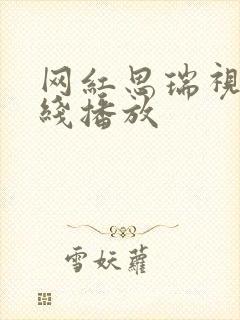 网紅思瑞視
綫播放
雪妖蘿